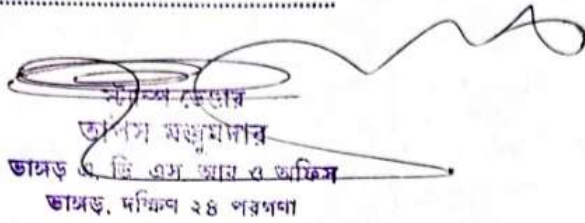 স্ট্যাম্প ভেণ্ডার
তাপস মজুমদার
ভাঙ্গড় এ, ডি এস আর ও অফিস
ভাঙ্গড়, দক্ষিণ ২৪ পরগণা